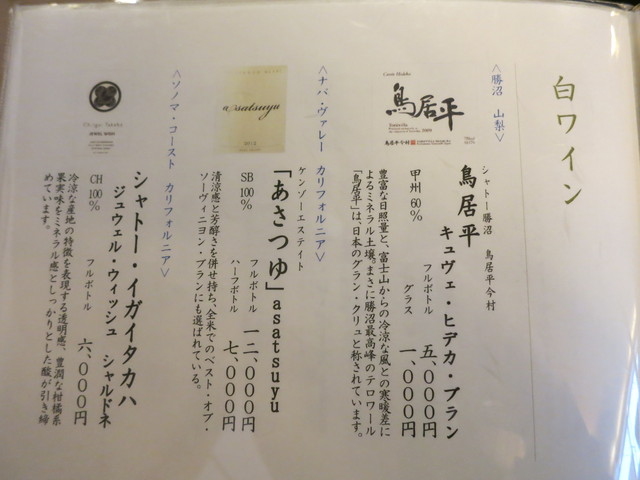 白ワイン
〈勝沼 山梨〉
シャトー勝沼 鳥居平今村
鳥居平 キュヴェ・ヒデカ・ブラン
甲州 60%
フルボトル 五、〇〇〇円
グラス 一、〇〇〇円
豊富な日照量と、富士山からの冷涼な風との寒暖差に
よるミネラル土壌。まさに勝沼最高峰のテロワール
「鳥居平」は、日本のグラン・クリュと称されています。
鳥居平
鳥居平今村
〈ナパ・ヴァレー カリフォルニア〉
ケンゾーエステイト
「あさつゆ」asatsuyu
SB 100%
フルボトル 一二、〇〇〇円
ハーフボトル 七、〇〇〇円
清涼感と芳醇さを併せ持ち、全米でのベスト・オブ・
ソーヴィニヨン・ブランにも選ばれている。
asatsuyu
〈ソノマ・コースト カリフォルニア〉
シャトー・イガイタカハ
ジュウェル・ウィッシュ シャルドネ
CH 100%
フルボトル 六、〇〇〇円
冷涼な産地の特徴を表現する透明感、豊潤な柑橘系
果実味をミネラル感としっかりとした酸が引き締
めています。